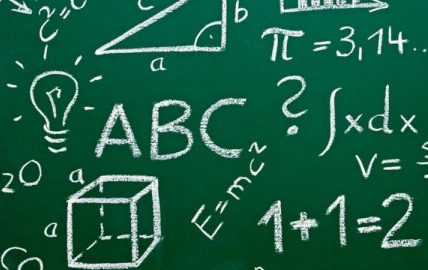 c
b
a
π = 3,14..
ABC
?
∫xdx
a
a
E=mc²
V=
1+1=2